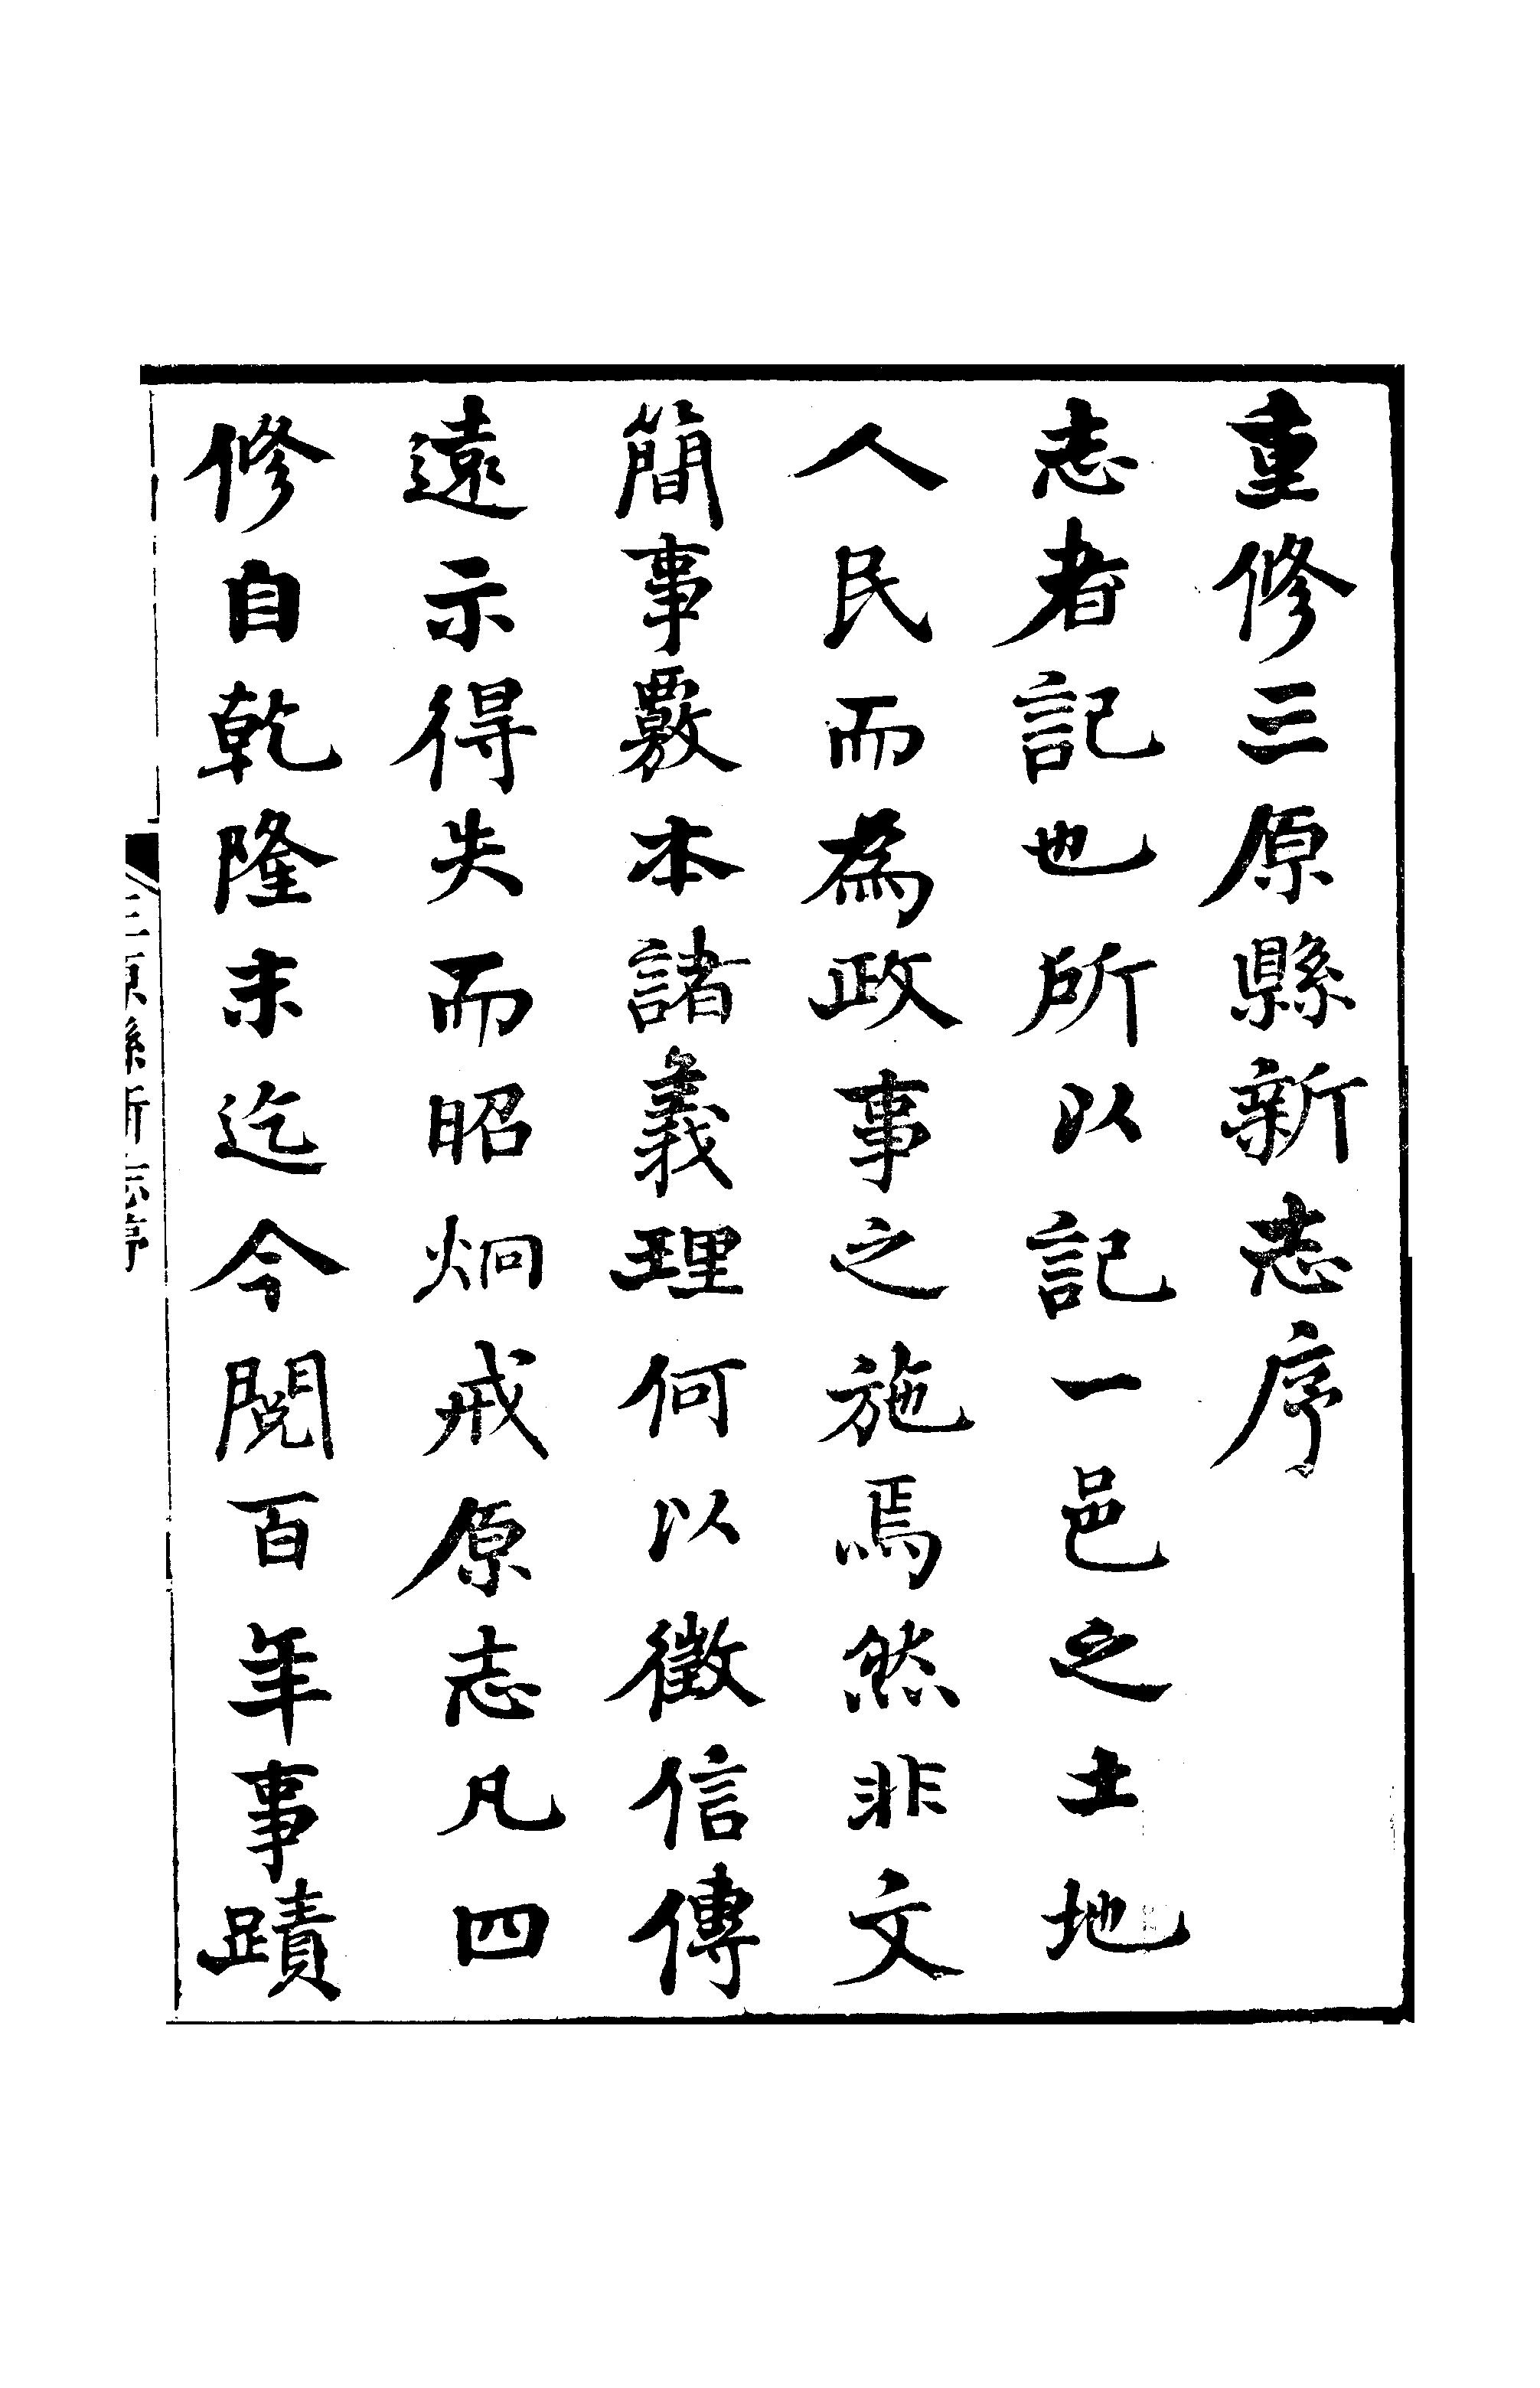 重修三原縣新志序
志者記也所以記一邑之土地
人民而為政事之施焉然非文
簡事覈本諸義理何以徵信傳
遠示得失而昭炯戒原志凡四
修自乾隆末迄今閱百年事蹟
三原縣新志序